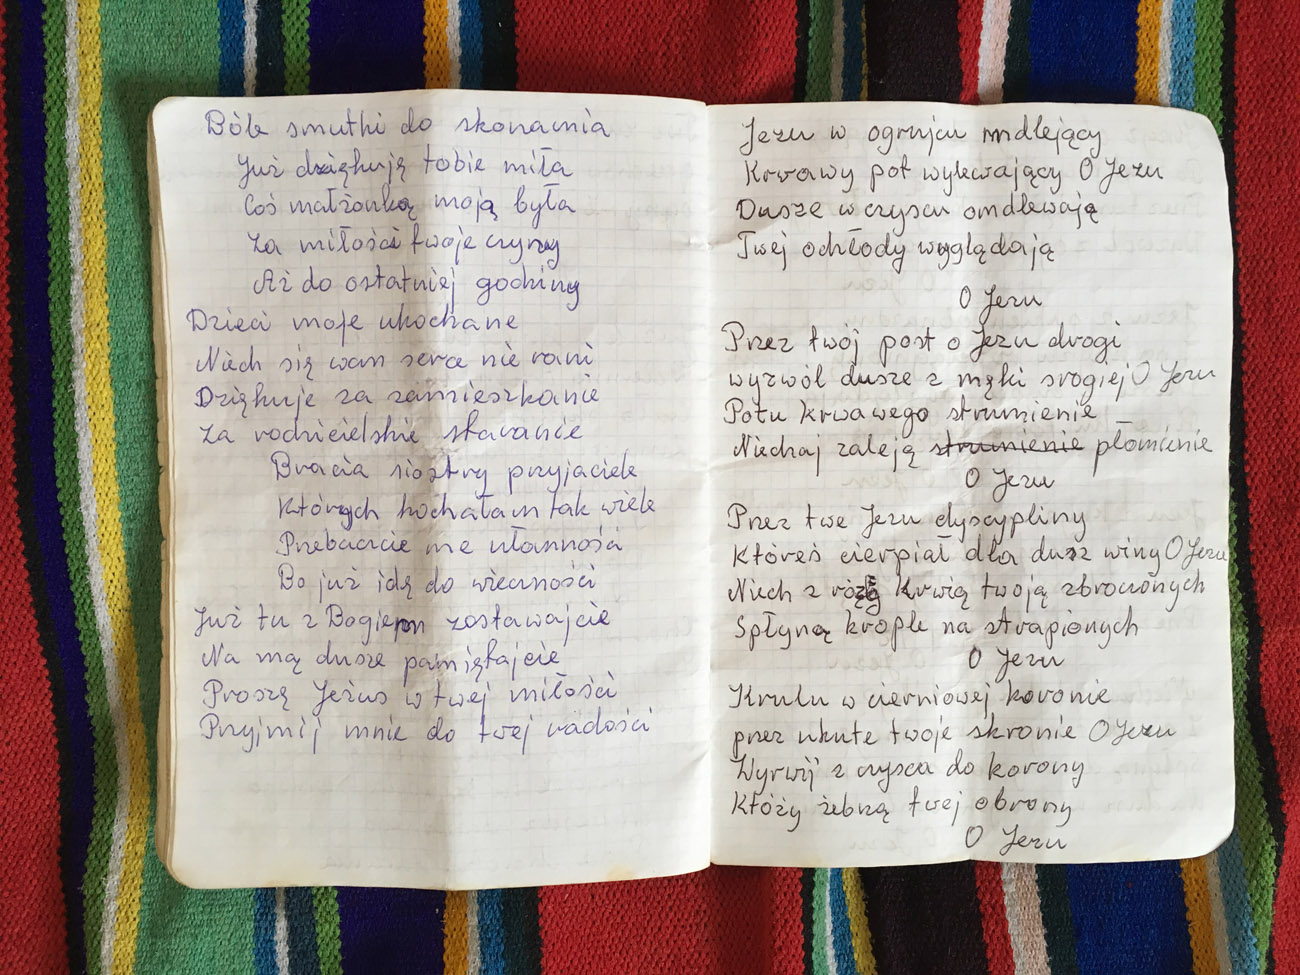 Bóle smutki do skonacnia
Już dziękuję tobie miła
Coś małżonką moją była
Za miłości twoje czyny
Aż do ostatniej godziny
Dzieci moje ukochane
Niech się wam serce nie rani
Dziękuje za zamieszkanie
Za rodzicielskie staranie
Bracia siostry przyjaciele
Których kochałam tak wiele
Przebaczcie me ułomności
Bo już idę do wieczności
Już tu z Bogiem zostawajcie
Na mą dusze pamiętajcie
Proszę Jezus w twej miłości
Przyjmij mnie do twej radości
Jezu w ogrujcu mdlejący
Krwawy pot wylewający O Jezu
Dusze w czyscu omdlewają
Twej ochłody wyglądają
O Jezu
Przez twój post o Jezu drogi
wyzwól dusze z męki srogiej O Jezu
Potu krwawego strumienie
Niechaj zaleją strumienie płomienie
O Jezu
Przez twe Jezu dyscypliny
Któreś cierpiał dla dusz winy O Jezu
Niech z rózg krwią twoją zbroczonych
Spłyną krople na strapionych
O Jezu
Krulu w cierniowej koronie
przez ukute twoje skronie O Jezu
Wyrwij z czysca do korony
Któży żebrzą twej obrony
O Jezu